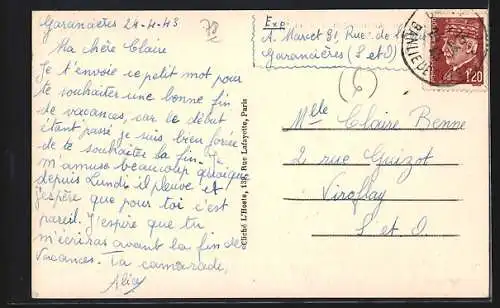 Garancières 24-4-43
Ma chère Claire
Je t'envoie ce petit mot pour
te souhaiter une bonne fin
de vacances, car le début
étant passé je suis bien forcée
de te souhaiter la fin. Je
m'amuse beaucoup quoique
depuis Lundi il pleuve et
j'espère que pour toi c'est
pareil. J'espère que tu
m'écriras avant la fin de
Vacances. Ta camarade,
Alice
78
Cliché L'Hoste, 139, Rue Lafayette, Paris
Exp
A. Marcet 81 Rue de
Garancières (S et O)
6
BANLIEUE
1F20
Mlle Claire Benne
2 rue Guizot
Viroflay
S et O